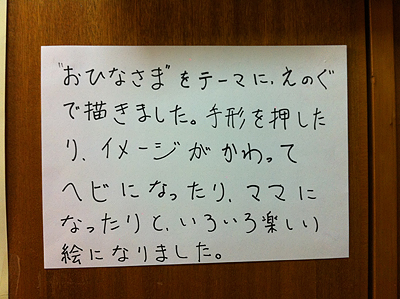 "おひなさま"をテーマに、えのぐ
で描きました。手形を押した
り、イメージがかわって
ヘビになったり、ママに
なったりと、いろいろ楽しい
絵になりました。